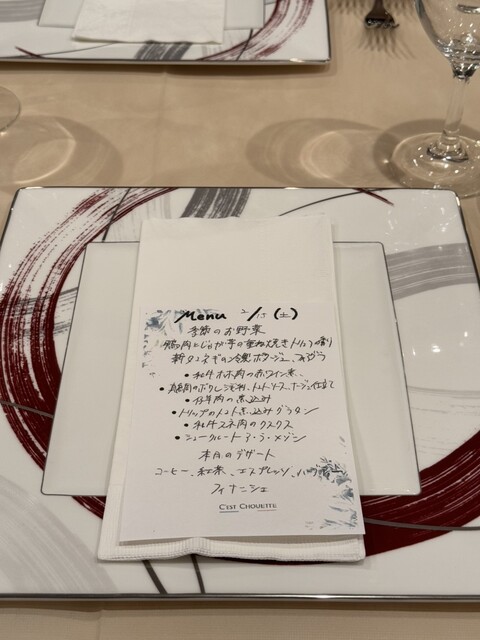 Menu 2/15 (土)
季節のお野菜
鴨肉とじゃが芋の重ね焼きトリュフの香り
新タマネギの冷製ポタージュ
・和牛ホホ肉の赤ワイン煮
・のポワレ トマトソース 仕立て
・仔羊肉の煮込み
・トリップのトマト煮込みグラタン
・和牛スネ肉のクスクス
・シュークルート ア・ラ・メゾン
本日のデザート
コーヒー、紅茶、エスプレッソ、ハーブティー
フィナンシェ
C'EST CHOUETTE